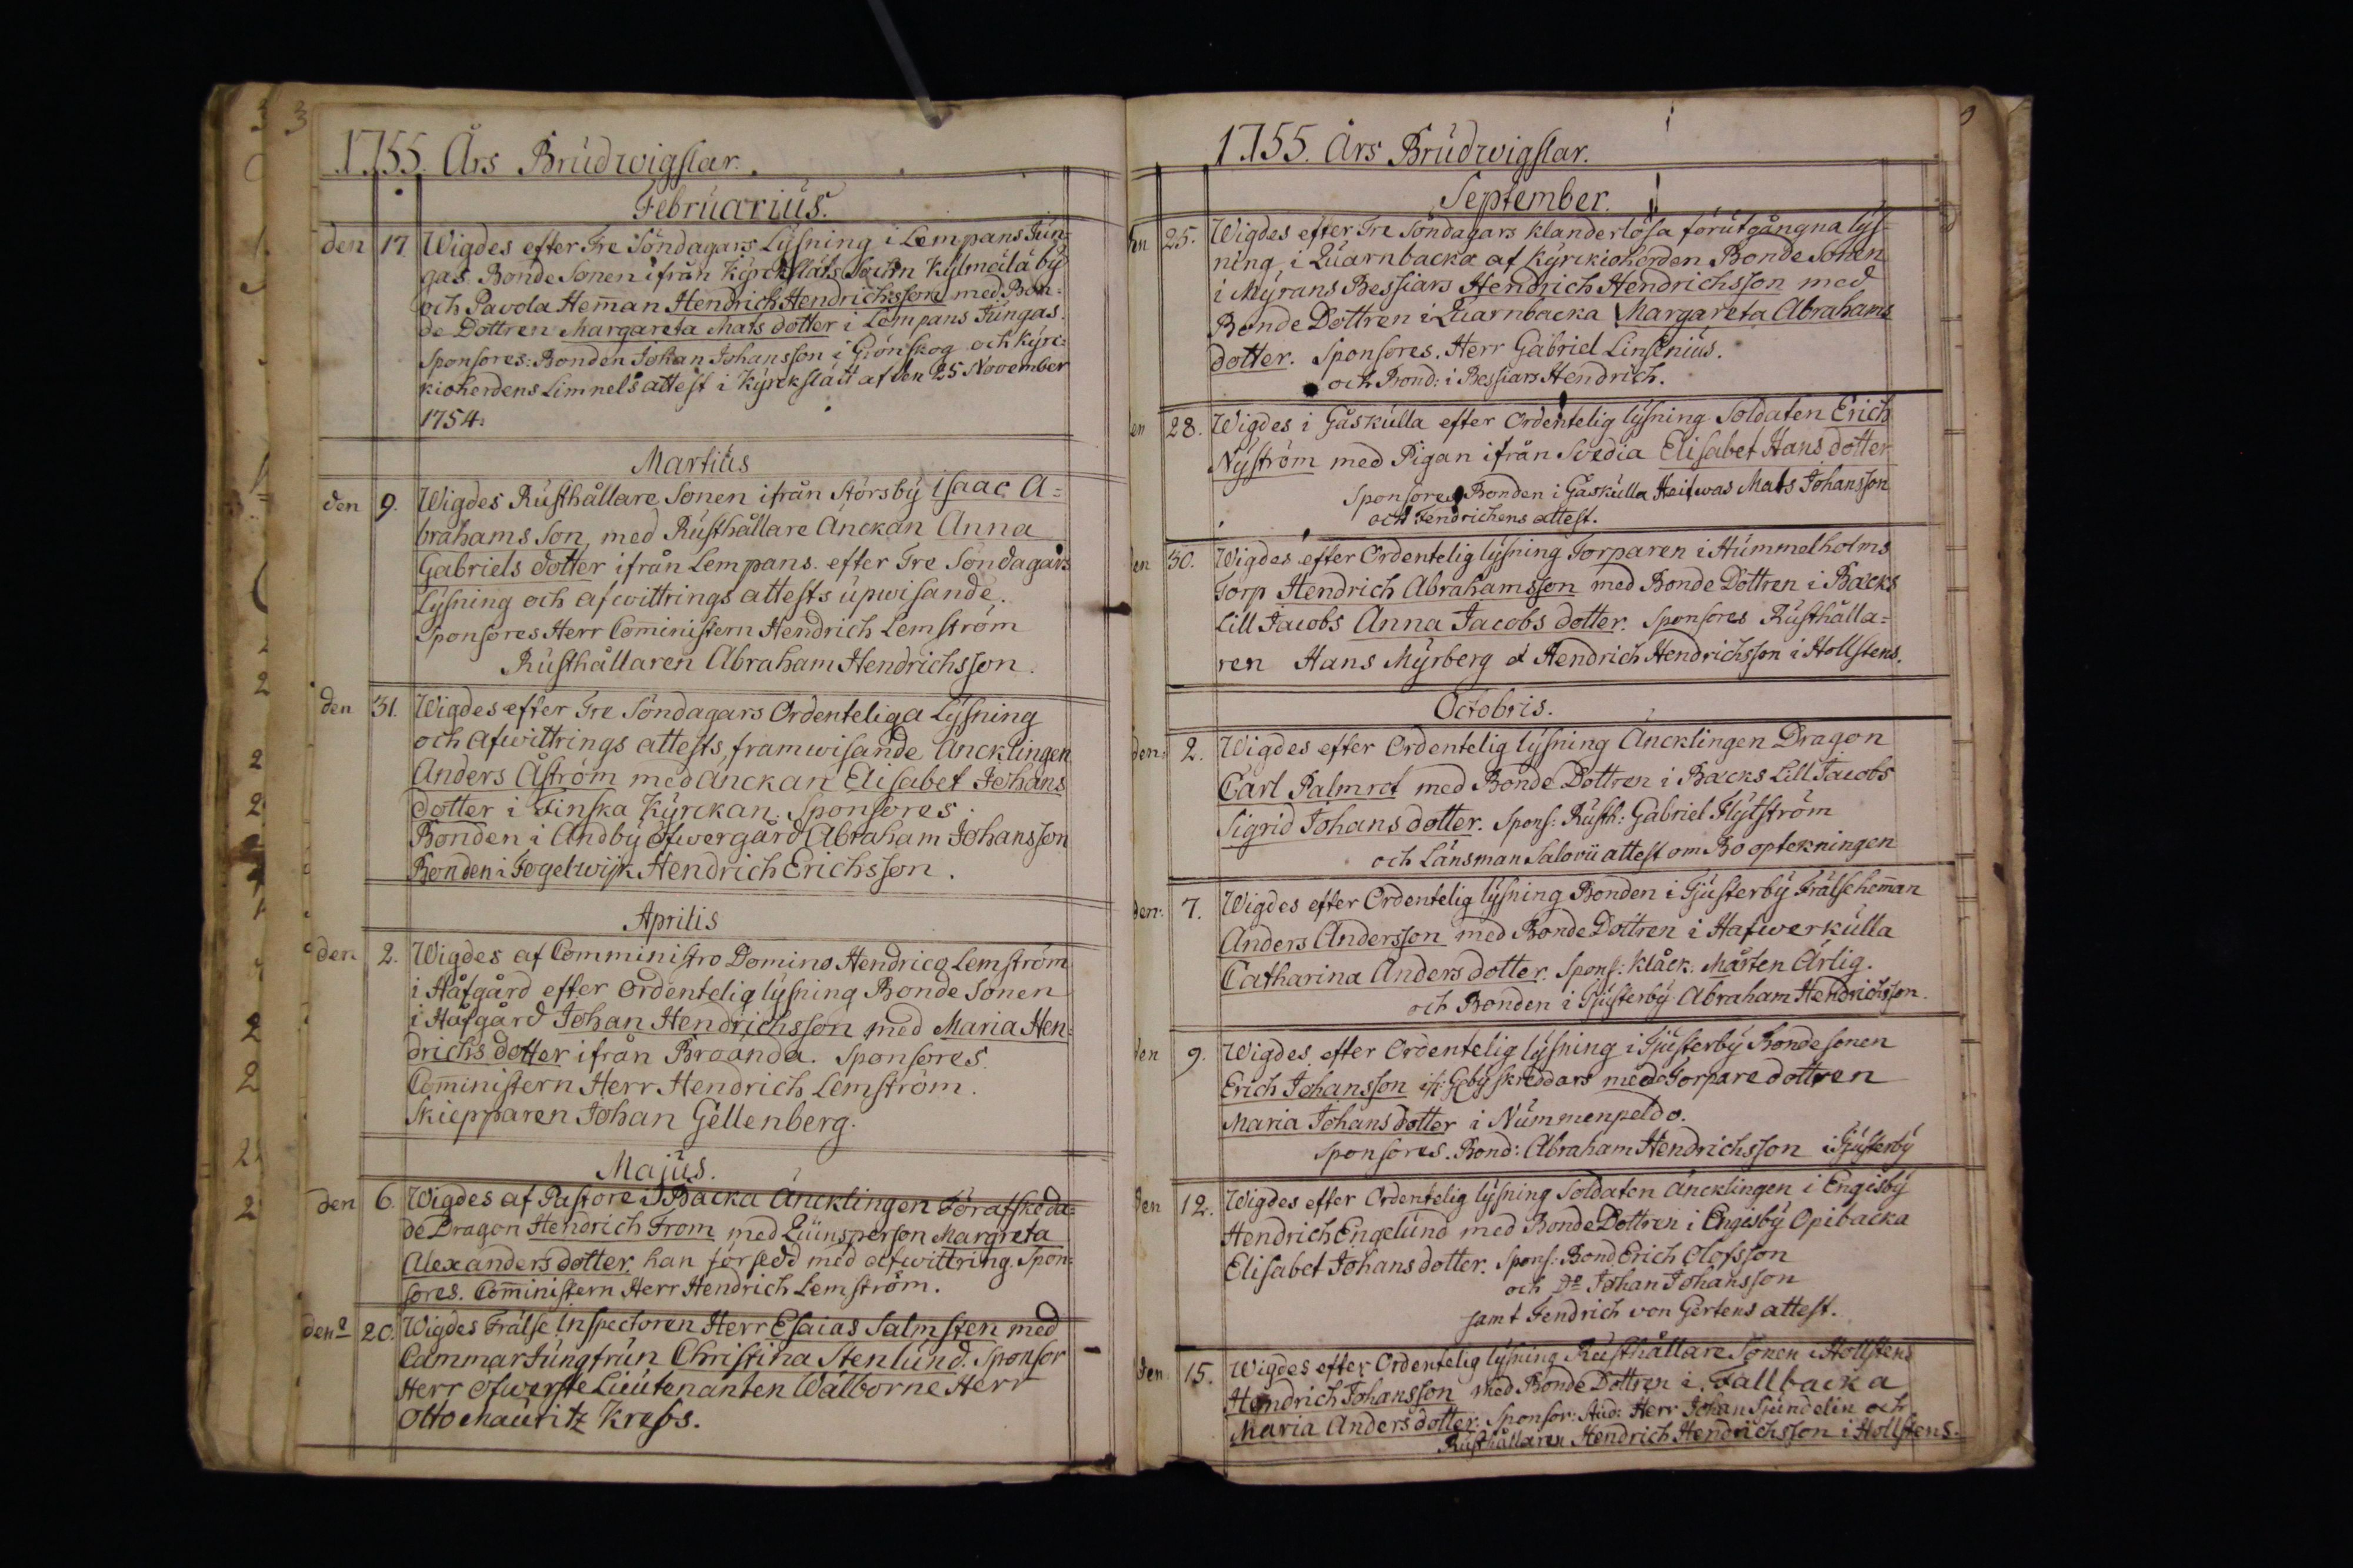 3
1755. Års Brudwigslar.
Februarius.
den 17 Wigdes efter Tre Söndagars Lysning i Lempans Jun-
gas Bonde Sonen ifrån Kyrckslätt Sochn Kylmälä by
och Pavola Hem̄an Hendrich Hendrichsson med Bon-
de Dottren Margareta Mats dotter i Lempans Jungas.
Sponsores: Bonden Johan Johansson i Grönskog och Kyrc-
kioherdens Limnels attest i Kyrckslätt af den 25 November
1754.
Martius
den 9. Wigdes Rusthållare Sonen ifrån Störsby Isaac A=
brahams Son, med Rusthållare Änckan Anna
Gabriels dotter ifrån Lempans. efter Tre Söndagars
Lysning och afwittrings attests upwisande.
Sponsores Herr Com̄inistern Hendrich Lemström
Rusthållaren Abraham Hendrichsson.
den 31. Wigdes efter Tre Söndagars Ordenteliga Lysning
och afwittrings attests, framwisande Äncklingen
Anders Åström med änckan Elisabet Johans
dotter i Finska Kyrckan. Sponsores.
Bonden i Andby Öfwergård Abraham Johansson
Bonden i Fogelwijk Hendrich Erichsson.
Aprilis
den 2. Wigdes af Comministro Domino Hendrico Lemström
i Håfgård efter ordentelig lysning Bonde Sonen
i Håfgård Johan Hendrichsson med Maria Hen-
drichs dotter ifrån Broända. Sponsores.
Com̄inistern Herr Hendrich Lemström.
Skiepparen Johan Gellenberg.
Majus.
den 6. Wigdes af Pastore i Backa Äncklingen Förafskeda=
de Dragon Hendrich From med Quinsperson Margreta
Alexanders dotter, han försedd med afwittring. Spon-
sores. Com̄inistern Herr Hendrich Lemström.
den 20. Wigdes Frälse Inspectoren Herr Esaias Salmsten med
Cammar Jungfrun Christina Stenlund. Sponsor
Herr Öfwerste Lieutenanten Wälborne Herr
Otto Mauritz Krebs.
1755. Års Brudwigslar.
September.
en 25. Wigdes efter Tre Söndagars klanderlösa förutgångna lys-
ning, i Quarnbacka af Kyrckioherden Bonde Sonen
i Myrans Bessiars Hendrich Hendrichsson med
Bonde Dottren i Quarnbacka Margareta Abrahams
dotter. Sponsores. Herr Gabriel Linsenius.
och Bond: i Bessiars Hendrich.
en 28. Wigdes i Gåskulla efter Ordentelig lysning Soldaten Erich
Nyström med Pigan ifrån Svedia Elisabet Hans dotter
Sponsores Bonden i Gåskulla Heitwas Mats Johansson
och Fendrichens attest.
en 30. Wigdes efter Ordentelig lysning Torparen i Hummelholms
Torp Hendrich Abrahamsson med Bonde Dottren i Backs
Lill Jacobs Anna Jacobs dotter. Sponsores Rusthålla=
ren Hans Myrberg et Hendrich Hendrichsson i Hollstens.
Octobris.
den 2. Wigdes efter Ordentelig lysning Äncklingen Dragon
Carl Palmrot med Bonde Dottren i Backs Lill Jacobs
Sigrid Johans dotter. Spons: Rusth: Gabriel Flytström
och Länsman Salovii attest om Bo optekningen
den: 7. Wigdes efter Ordentelig lysning Bonden i Gjusterby Frälsehem̄an
Anders Andersson med Bonde Dottren i Hafwerkulla
Catharina Anders dotter. Spons: Klåck: Mårten Ärlig.
och Bonden i Gjusterby Abraham Hendrichsson.
den 9. Wigdes efter Ordentelig lysning i Gjusterby Bondesonen
Erich Johansson Göby skreddars med Torpare dottren
Maria Johans dotter i Nummenpeldo.
Sponsores. Bond: Abraham Hendrichsson i Gjusterby
den 12. Wigdes efter Ordentelig lysning Soldaten Äncklingen i Engisby
Hendrich Engelund med Bonde Dottren i Engisby Opibacka
Elisabet Johans dotter. Spons: Bond Erich Olofsson
och Do Johan Johansson
samt Fendrich von Gertens attest.
den 15. Wigdes efter Ordentelig lysning Rusthållare Sonen i Hollstens
Hendrich Johansson med Bonde Dottren i Fallbacka
Maria Anders dotter. Sponsor: Stud: Herr Johan Sjundelin och
Rusthållaren Hendrich Hendrichsson i Hollstens.